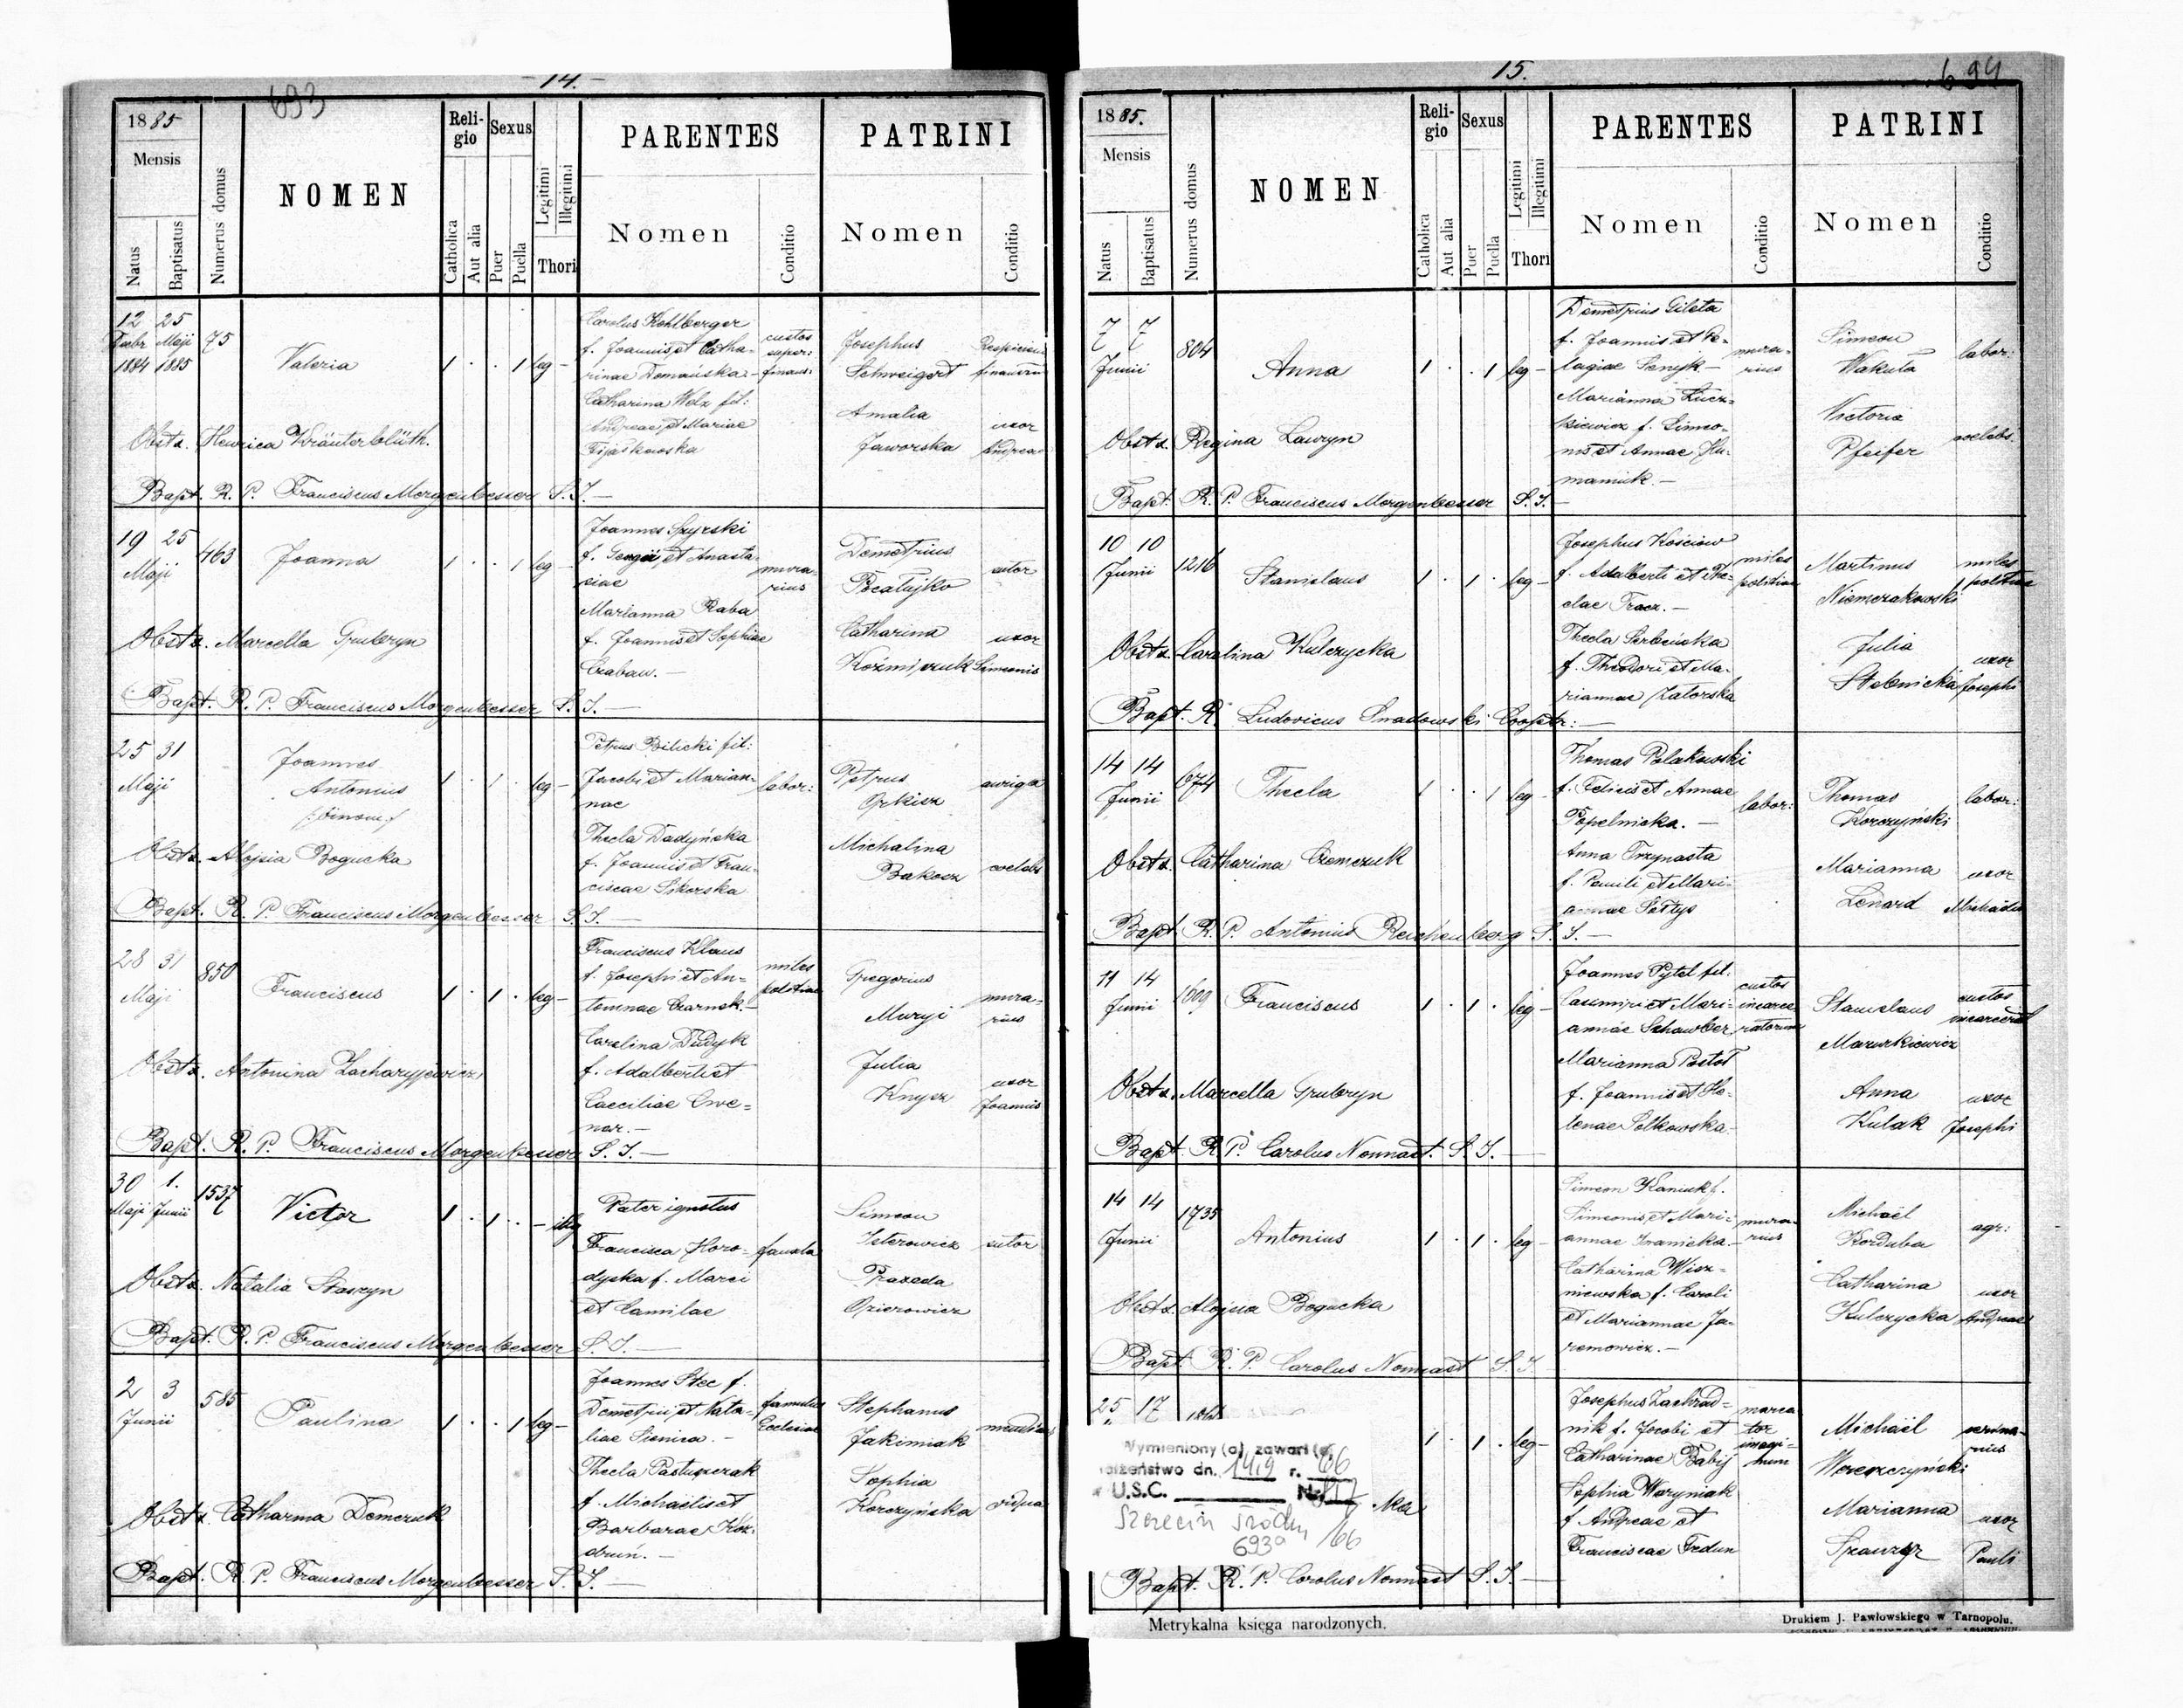 693
- 14. -
1885
Mensis
Natus
Baptisatus
Numerus domus
NOMEN
Religio
Catholica
Aut alia
Sexus
Puer
Puella
Legitimi
Illegitimi
Thori
PARENTES
Nomen
Conditio
PATRINI
Nomen
Conditio
12 25
Maji
1884 1885
75
Valeria
1 . . 1 leg -
Carolus Kohlberger
f. Joannis et Catha-
rinae Domańska -
Catharina Welz fil:
Andreae et Mariae
custos
finans:
Josephus
Schweigert
Amalia
Jaworska
uxor
Andreae
Obstx. Henrica Kräuterblüth.
Bapt. R. P. Franciscus Morgenbesser S. J. -
19 25
Maji
463
Joanna
1 . . 1 leg -
Joannes Szyrski
f. Georgii et Anasta-
siae
Marianna Raba
f. Joannis et Sophiae
Czaban. -
mura-
rius
Demetrius
sutor
Catharina
Koźmiczuk
uxor
Simeonis
Obstx. Marcella Gruberyn
Bapt. R. P. Franciscus Morgenbesser S. J. -
25 31
Maji
Joannes
Antonius
/:binom:/
1 . 1 . leg -
Petrus Bilicki fil:
Jacobi et Marian-
nae
Thecla Dadyńska
f. Joannis et Fran-
ciscae Sikorska
labor:
Petrus
auriga
Michalina
Bakosz
coelebs
Obstx. Alojsia Bogucka
Bapt. R. P. Franciscus Morgenbesser S. J. -
28 31
Maji
850
Franciscus
1 . 1 . leg -
Franciscus Klaus
f. Josephi et An-
toninae Czarnek. -
Carolina Dudyk
f. Adalberti et
Caeciliae Cwe=
nar. -
miles
politiae
Gregorius
Muryj
mura-
rius
Julia
Knysz
uxor
Joannis
Obstx. Antonina Zacharyjewicz
Bapt. R. P. Franciscus Morgenbesser S. J. -
30 1.
Maji Junii
1537
Victor
1 . 1 . - illeg
Pater ignotus
Francisca Horo-
dyska f. Marci
et Camilae
famula
Simeon
Isterowicz
sutor
Praxeda
Ozierowicz
Obstx. Natalia Staszyn
Bapt. R. P. Franciscus Morgenbesser S. J. -
2 3
Junii
585
Paulina
1 . . 1 leg -
Joannes Stec f.
Demetrii et Nata-
liae Sienica. -
Thecla Pastuszczak
f. Michaëlis et
Barbarae Koz-
druń. -
famulus
Ecclesiae
Stephanus
Jakimiak
Sophia
Korczyńska
vidua
Obstx. Catharina Demczuk
Bapt. R. P. Franciscus Morgenbesser S. J. -
15.
694
1885.
Mensis
Natus
Baptisatus
Numerus domus
NOMEN
Religio
Catholica
Aut alia
Sexus
Puer
Puella
Legitimi
Illegitimi
Thori
PARENTES
Nomen
Conditio
PATRINI
Nomen
Conditio
7 7
Junii
804
Anna
1 . . 1 leg -
Demetrius Gileta
f. Joannis et Pe-
lagiae Senyk -
Marianna Łucz-
kiewicz f. Simeo-
nis et Annae Hu-
maniuk. -
mura-
rius
Simeon
Wakuła
labor:
Victoria
Pfeifer
coelebs.
Obstx. Regina Lauryn
Bapt. R. P. Franciscus Morgenbesser S. J. -
10 10
Junii
1216
Stanislaus
1 . 1 . leg -
Josephus Kościów
f. Adalberti et The-
clae Tracz. -
Thecla Serbeńska
f. Theodori et Ma-
riannae Zatorska
miles
politiae
Martinus
Niemczakowski
miles
politiae
Julia
Stebnicka
uxor
Josephi
Obstx. Carolina Kulczycka
Bapt. R. Ludovicus Smadowski Cooptr: -
14 14
Junii
674
Thecla
1 . . 1 leg -
Thomas Polakowski
f. Felicis et Annae
Popelnicka. -
Anna Trzynasta
f. Pauli et Mari-
annae Sołtys
labor:
Thomas
Korczyński
labor:
Marianna
Lenard
uxor
Michaëlis
Obstx. Catharina Demczuk
Bapt. R. P. Antonius Reichenberg S. J. -
11 14
Junii
1609
Franciscus
1 . 1 . leg -
Joannes Pytel fil.
Casimiri et Mari-
annae Schawber
Marianna Postół
f. Joannis et He-
lenae Polkowska
custos
incarce-
ratorum
Stanislaus
Mazurkiewicz
custos
incarcerat
Anna
Kulak
uxor
Josephi
Obstx. Marcella Gruberyn
Bapt. R. P. Carolus Nonnast. S. J. -
14 14
Junii
1735
Antonius
1 . 1 . leg -
Simeon Kaniuk f.
Simeonis et Mari-
annae Iwanicka. -
Catharina Wisz-
niewska f. Caroli
et Mariannae Ja-
remowicz. -
mura-
rius
Michaël
Korduba
agr:
Catharina
Kulczycka
uxor
Andreae
Obstx. Alojsia Bogucka
Bapt. R. P. Carolus Nonnast S. J.
25 17
1 . 1 . leg -
Josephus Zachrad=
nik f. Jacobi et
Catharinae Babij
Sophia Waryniak
f. Andreae et
Franciscae Fedun
merca-
tor
imagi-
num
Michaël
Wereszczyński
Marianna
uxor
Pauli
Wymieniony (a) zawarł (a)
małżeństwo dn. 14/9 r. 66
w U.S.C. Nr. 817
Szczecin Środm /66
693a
Bapt. R. P. Carolus Nonnast S. J. -
Metrykalna księga narodzonych.
Drukiem J. Pawłowskiego w Tarnopolu.